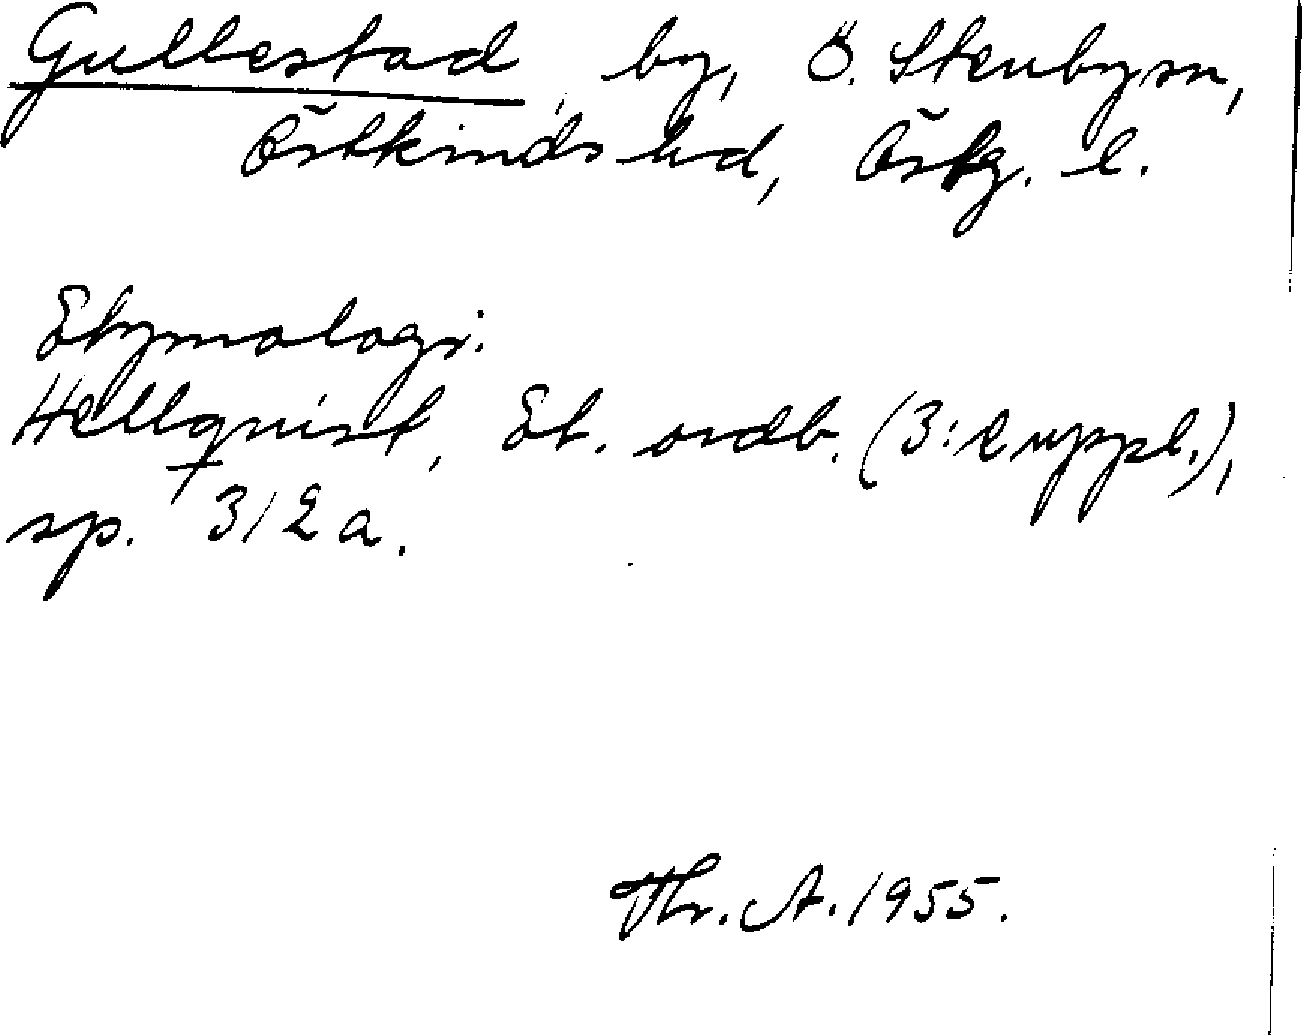 Gullestad, by, Ö. Stenby sn,
Östkinds hd, Östg. l.
Etymologi:
Hellquist, Et. ordb. (3:e uppl.),
sp. 312 a.
Thr. A. 1955.